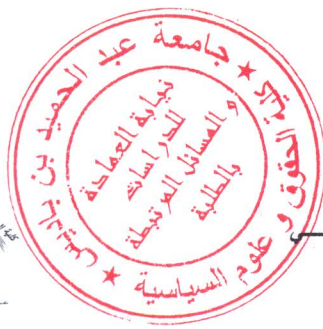 جامعة عبد الحميد بن باديس
★ كلية الحقوق و علوم السياسية ★
نيابة العمادة
للدراسات
و المسائل المرتبطة
بالطلبة